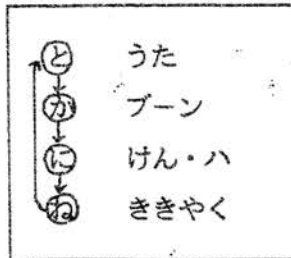 と うた
が ブーン
に けん・ハ
ね ききやく